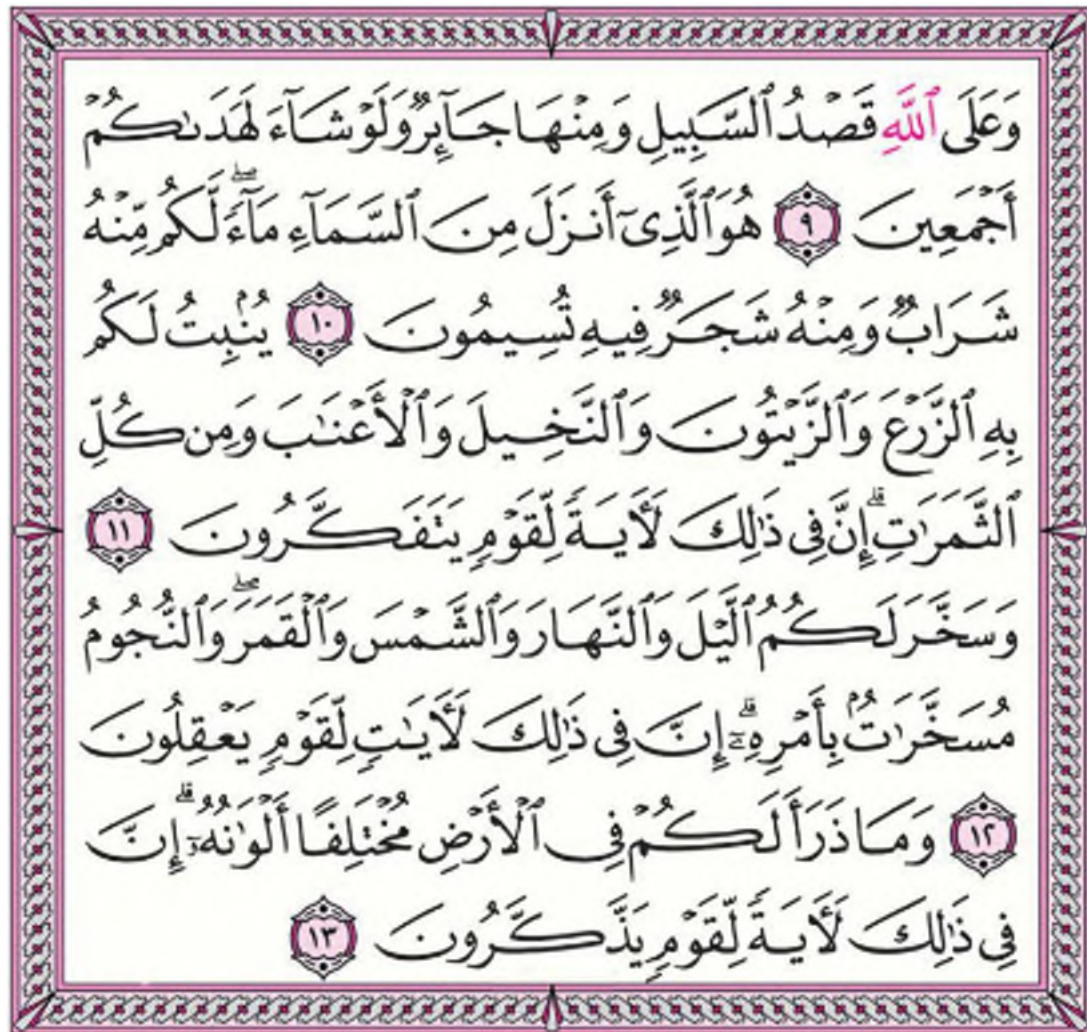 وَعَلَى ٱللَّهِ قَصْدُ ٱلسَّبِيلِ وَمِنْهَا جَآئِرٌ وَلَوْ شَآءَ لَهَدَىٰكُمْ
أَجْمَعِينَ ٩ هُوَ ٱلَّذِىٓ أَنزَلَ مِنَ ٱلسَّمَآءِ مَآءًۖ لَّكُم مِّنْهُ
شَرَابٌ وَمِنْهُ شَجَرٌ فِيهِ تُسِيمُونَ ١٠ يُنۢبِتُ لَكُم
بِهِ ٱلزَّرْعَ وَٱلزَّيْتُونَ وَٱلنَّخِيلَ وَٱلْأَعْنَٰبَ وَمِن كُلِّ
ٱلثَّمَرَٰتِۗ إِنَّ فِى ذَٰلِكَ لَأَيَةً لِّقَوْمٍ يَتَفَكَّرُونَ ١١
وَسَخَّرَ لَكُمُ ٱلَّيْلَ وَٱلنَّهَارَ وَٱلشَّمْسَ وَٱلْقَمَرَۖ وَٱلنُّجُومُ
مُسَخَّرَٰتٌۢ بِأَمْرِهِۦٓۗ إِنَّ فِى ذَٰلِكَ لَأَيَٰتٍ لِّقَوْمٍ يَعْقِلُونَ
١٢ وَمَا ذَرَأَ لَكُمْ فِى ٱلْأَرْضِ مُخْتَلِفًا أَلْوَٰنُهُۥٓۗ إِنَّ
فِى ذَٰلِكَ لَأَيَةً لِّقَوْمٍ يَذَّكَّرُونَ ١٣